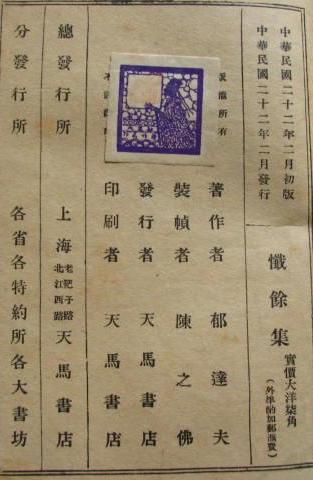 中華民國二十二年二月初版
中華民國二十二年二月發行
懺餘集
實價大洋柒角
（外埠酌加郵滙費）
著作者 郁達夫
裝幀者 陳之佛
發行者 天馬書店
印刷者 天馬書店
所有
總發行所 上海 老靶子路 北江西路 天馬書店
分發行所 各省各特約所各大書坊